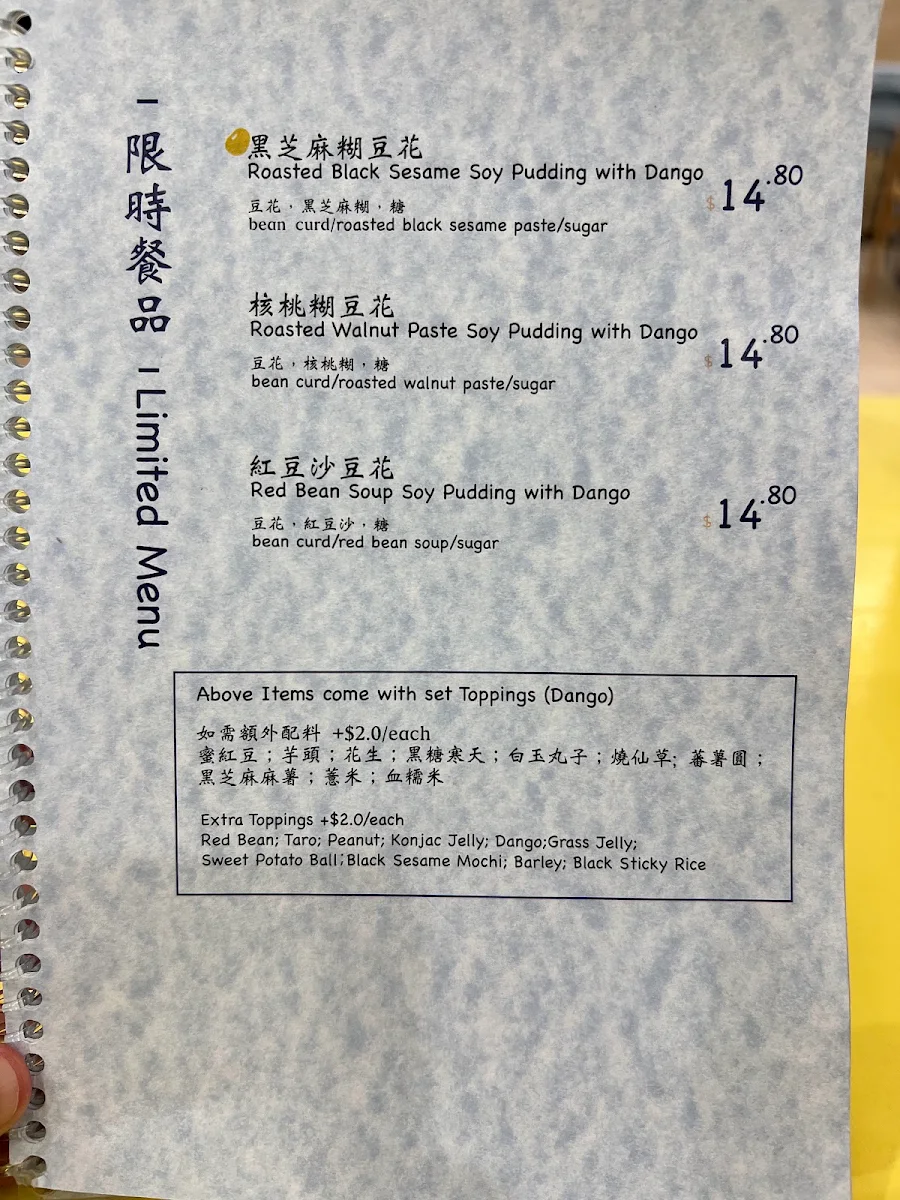 – 限時餐品 – Limited Menu
黑芝麻糊豆花
Roasted Black Sesame Soy Pudding with Dango
$14.80
豆花，黑芝麻糊，糖
bean curd/roasted black sesame paste/sugar
核桃糊豆花
Roasted Walnut Paste Soy Pudding with Dango
$14.80
豆花，核桃糊，糖
bean curd/roasted walnut paste/sugar
紅豆沙豆花
Red Bean Soup Soy Pudding with Dango
$14.80
豆花，紅豆沙，糖
bean curd/red bean soup/sugar
Above Items come with set Toppings (Dango)
如需額外配料 +$2.0/each
蜜紅豆；芋頭；花生；黑糖寒天；白玉丸子；燒仙草; 蕃薯圓；
黑芝麻麻薯；薏米；血糯米
Extra Toppings +$2.0/each
Red Bean; Taro; Peanut; Konjac Jelly; Dango;Grass Jelly;
Sweet Potato Ball;Black Sesame Mochi; Barley; Black Sticky Rice